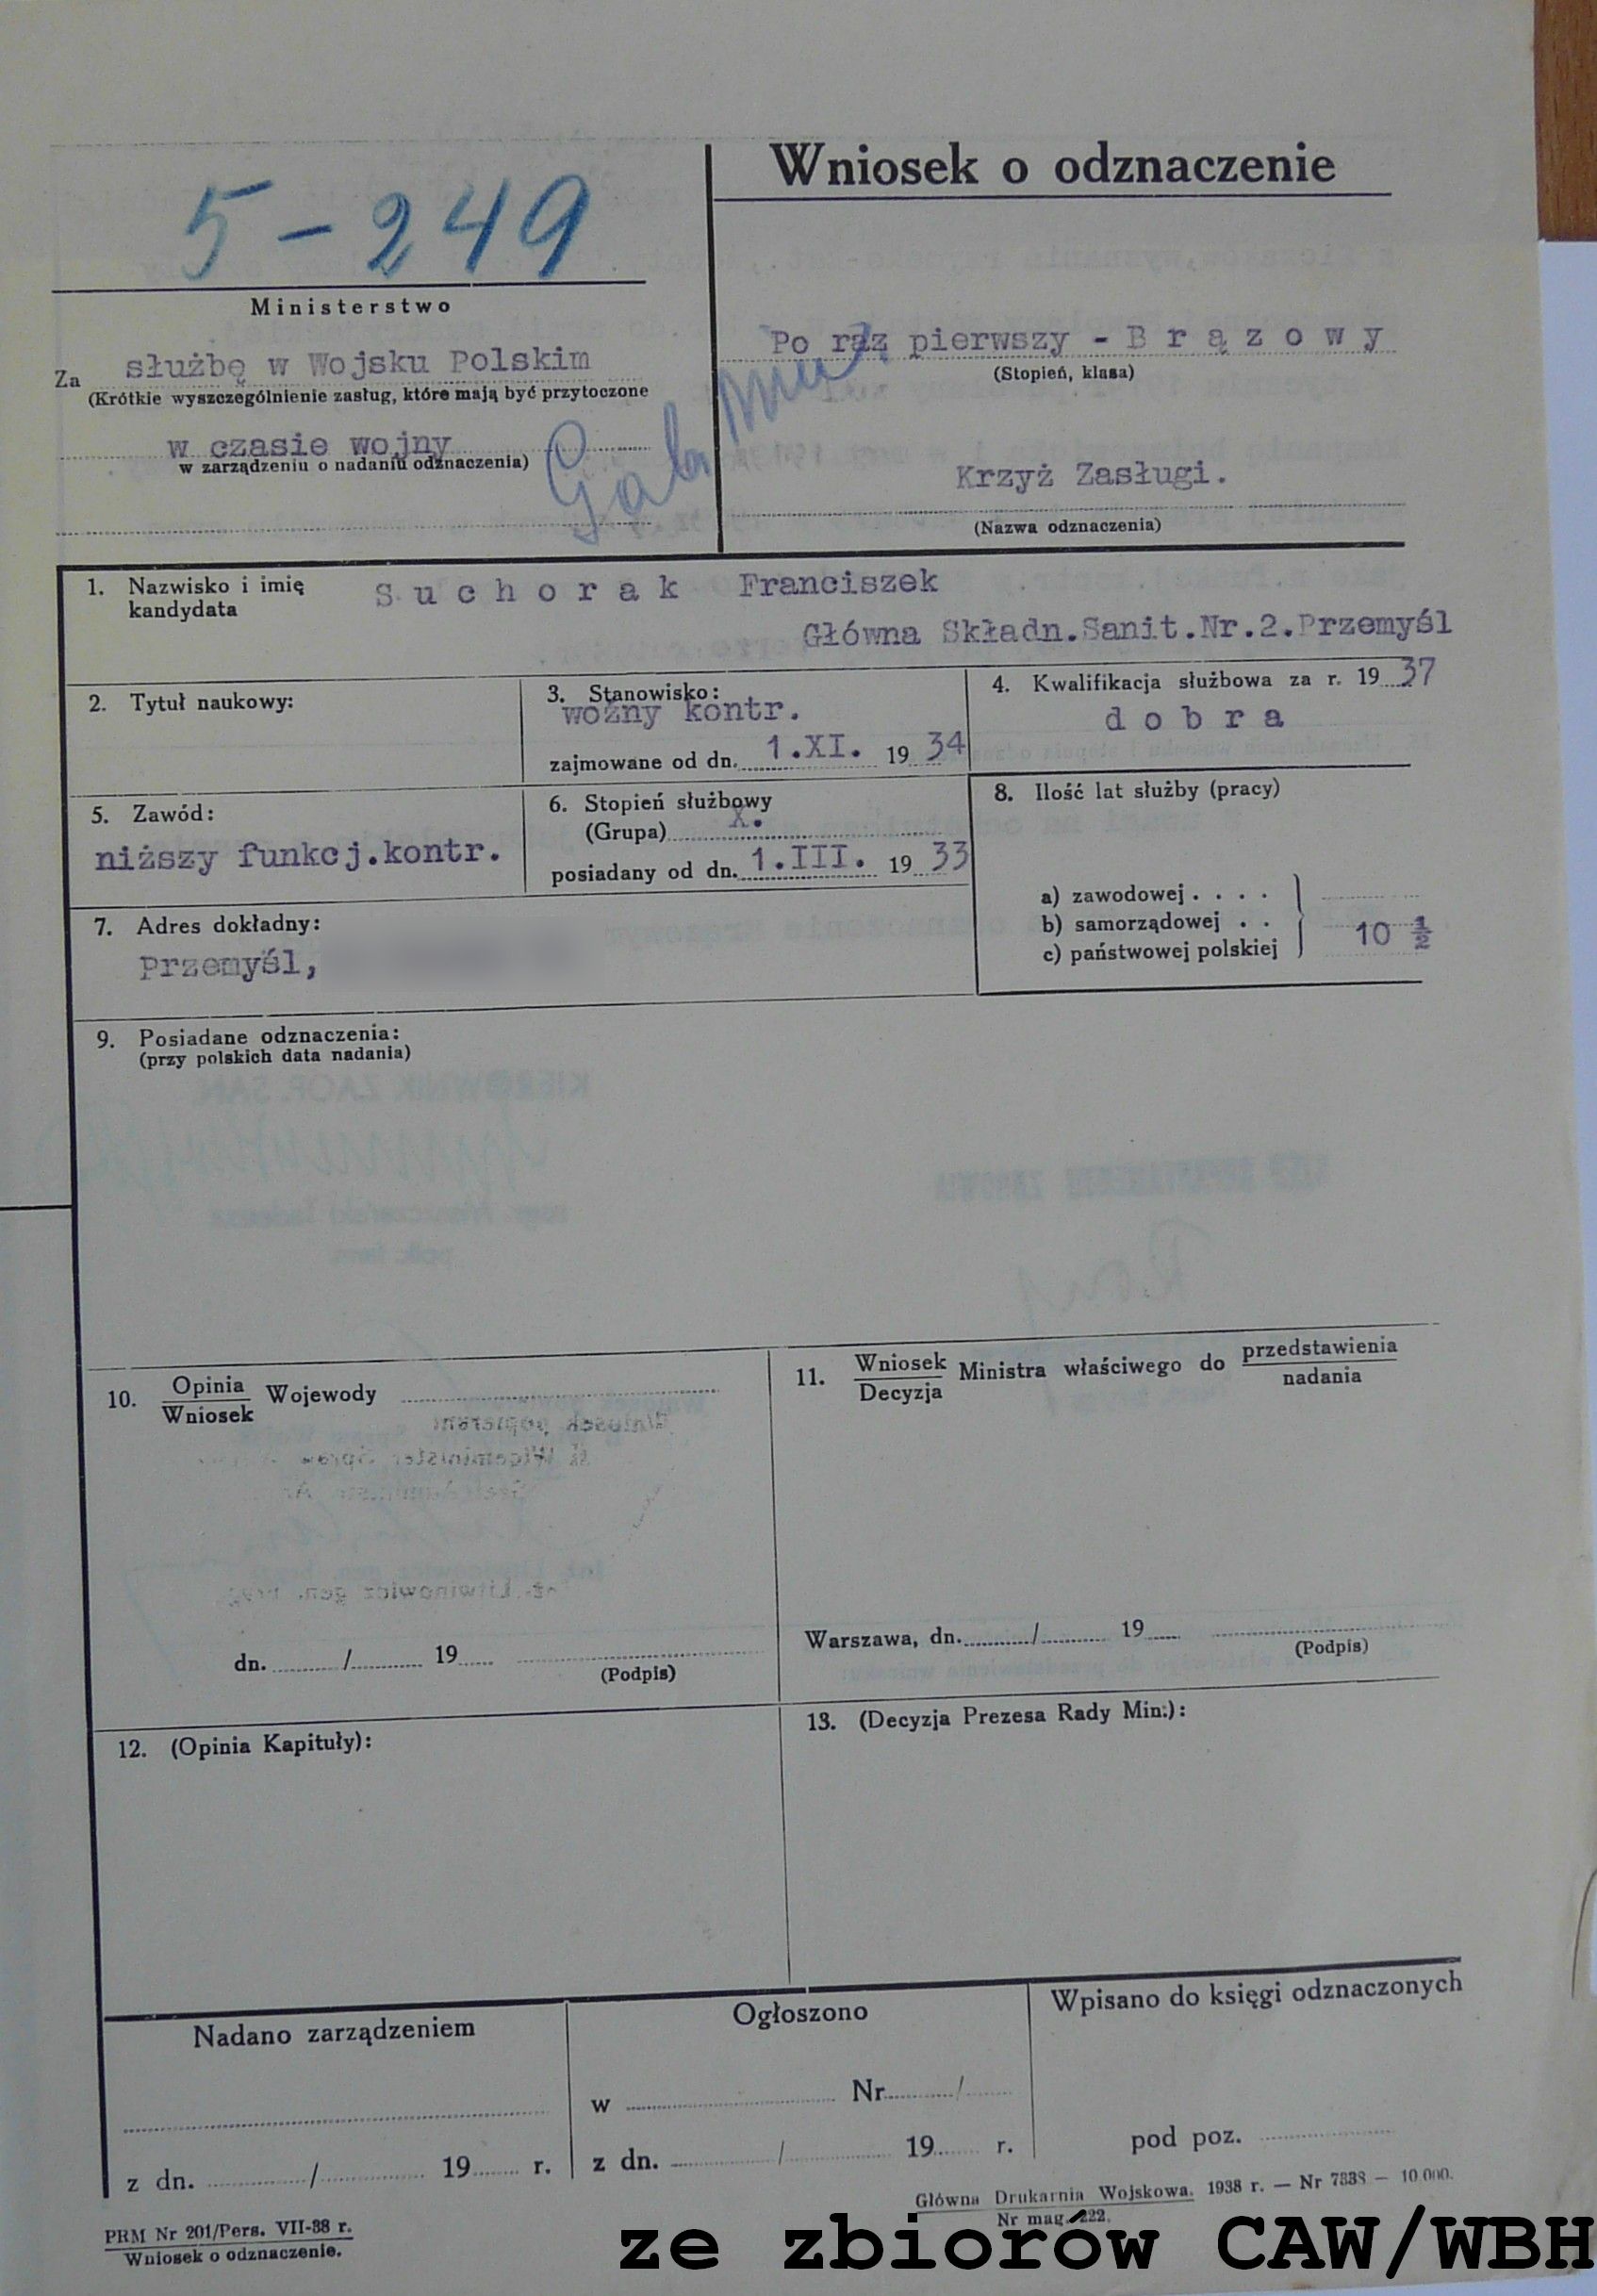 Wniosek o odznaczenie
5-249
Ministerstwo
Za służbę w Wojsku Polskim
(Krótkie wyszczególnienie zasług, które mają być przytoczone
w czasie wojny
w zarządzeniu o nadaniu odznaczenia)
Po raz pierwszy - Brązowy
(Stopień, klasa)
Krzyż Zasługi.
(Nazwa odznaczenia)
1. Nazwisko i imię
kandydata
Suchorak Franciszek
Główna Składn.Sanit.Nr.2.Przemyśl
2. Tytuł naukowy:
3. Stanowisko:
woźny kontr.
zajmowane od dn. 1.XI. 1934
4. Kwalifikacja służbowa za r. 1937
dobra
5. Zawód:
niższy funkcj.kontr.
6. Stopień służbowy
(Grupa) X.
posiadany od dn. 1.III. 1933
8. Ilość lat służby (pracy)
a) zawodowej . . . .
b) samorządowej . .
c) państwowej polskiej
10 ½
7. Adres dokładny:
Przemyśl,
9. Posiadane odznaczenia:
(przy polskich data nadania)
10. Opinia
Wniosek
Wojewody
dn. / 19
(Podpis)
11. Wniosek
Decyzja
Ministra właściwego do
przedstawienia
nadania
Warszawa, dn. / 19
(Podpis)
12. (Opinia Kapituły):
13. (Decyzja Prezesa Rady Min.):
Nadano zarządzeniem
z dn. / 19 r.
Ogłoszono
w Nr /
z dn. / 19 r.
Wpisano do księgi odznaczonych
pod poz.
PRM Nr 201/Pers. VII-38 r.
Wniosek o odznaczenie.
Główna Drukarnia Wojskowa. 1938 r. — Nr 7338 — 10.000.
Nr mag. 222.
ze zbiorów CAW/WBH